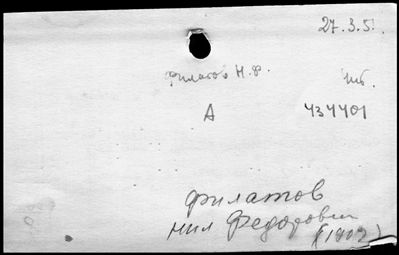 27.3.51
Филатов Н.Ф.
шб.
А 434401
Филатов
Нил Федорович
(1902)